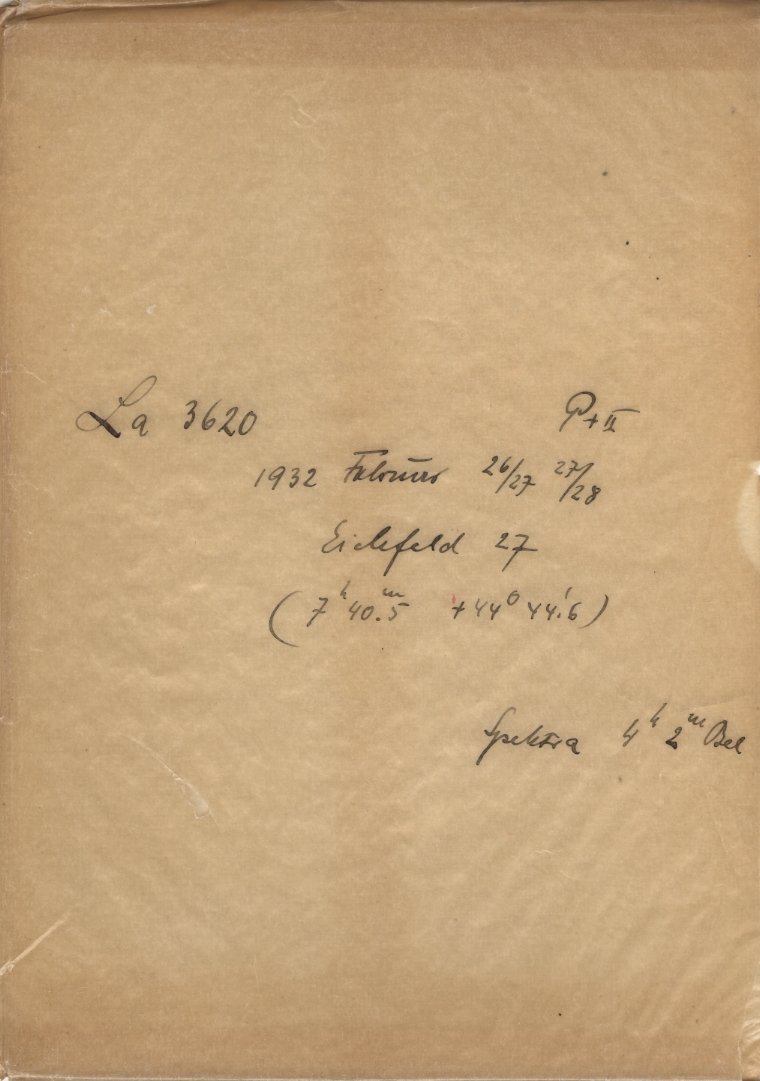 La 3620 P+II
1932 Februar 26/27 27/28
Eichfeld 27
(7ʰ40.ᵐ5 +44° 44.'6)
Spektra 4ʰ 2ᵐ Bel